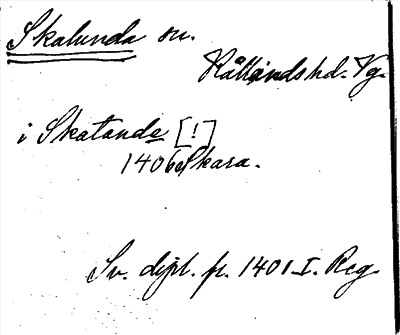 Skalunda sn.
Kållands hd. Vg.
i Skatande [!]
1406 Skara.
Sv. dipl. fr. 1401 I. Reg.